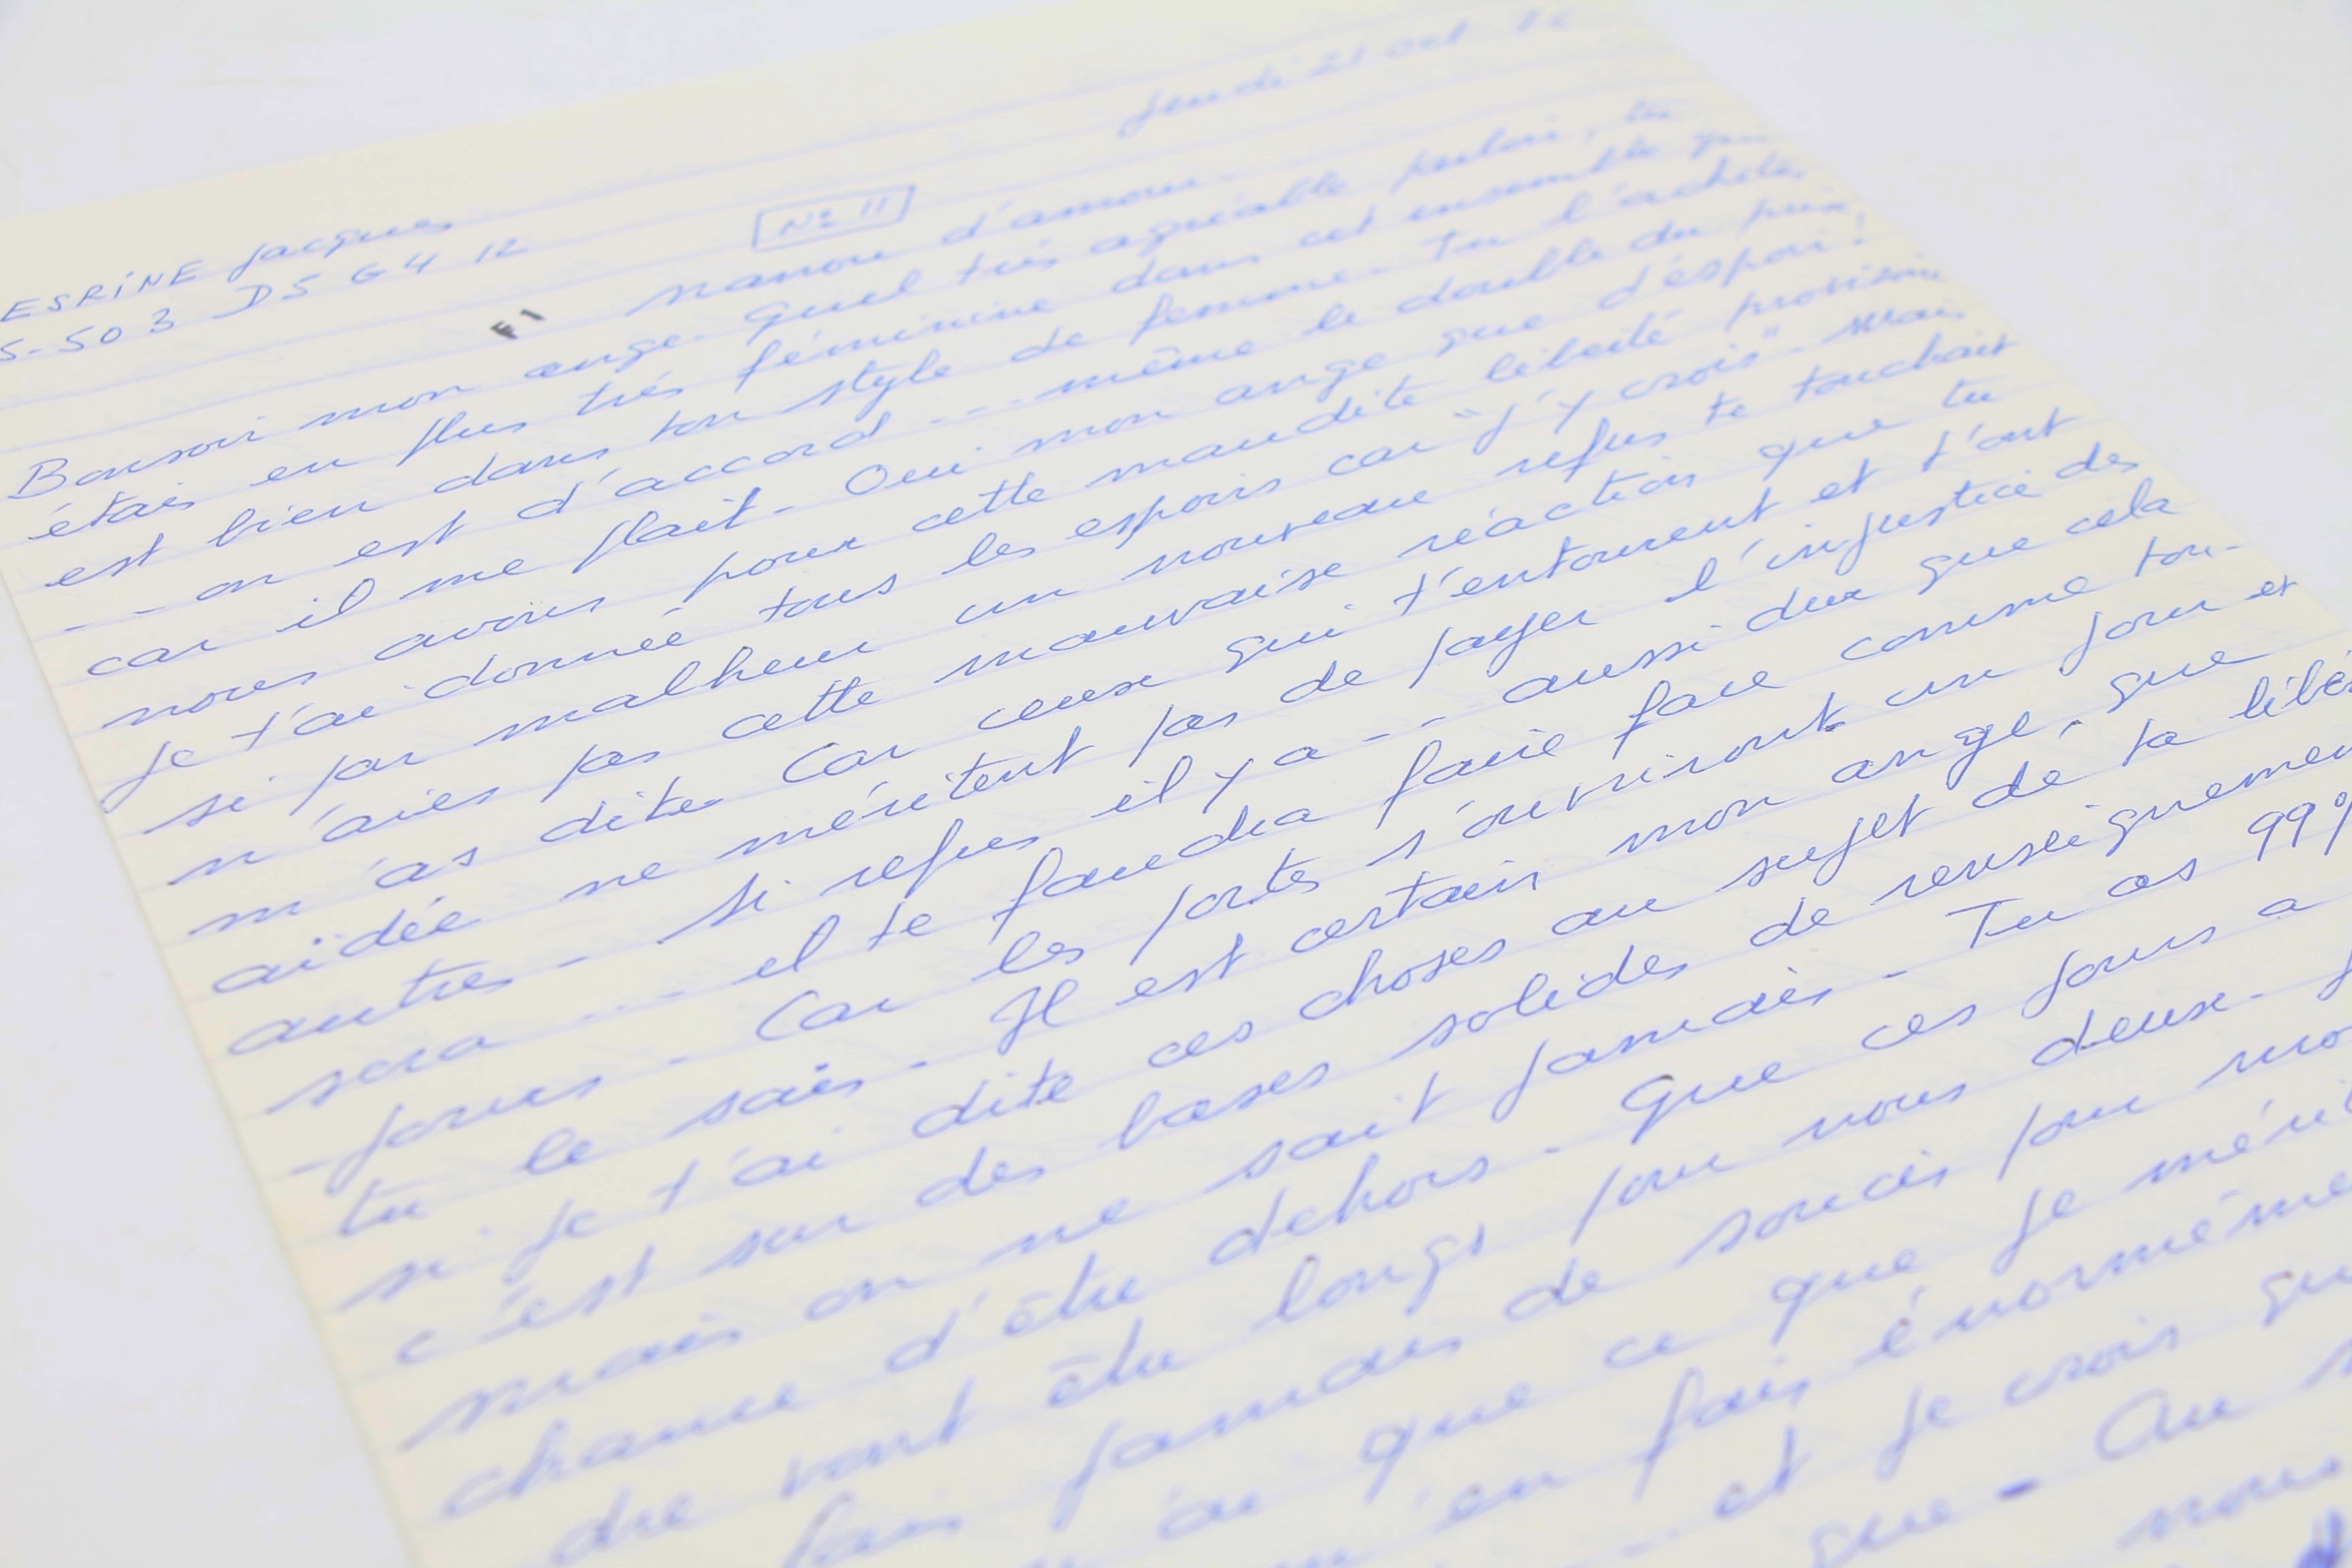 jeudi 21 oct 76
ESRINE Jacques
S-503 D5 G4 12
N° 11
F1
nanou d'amour
Bonsoir mon ange. Quel très agréable parloir, tu
étais en plus très féminine dans cet ensemble qui
est bien dans ton style de femme - Tu l'achètes
-- on est d'accord --- même le double du prix,
car il me plaît - Oui mon ange que d'espoir!
nous avons pour cette maudite liberté provisoire
je t'ai donnée tous les espoirs car "j'y crois" - Mais
si par malheur un nouveau refus te touchait
n'aies pas cette mauvaise réaction que tu
m'as dite. Car ceux qui t'entourent et t'ont
aidée ne méritent pas de payer l'injustice des
autres - Si refus il y a -- aussi dur que cela
sera --- il te faudra faire face comme tou-
-jours - Car les portes s'ouvriront un jour et
tu le sais - Il est certain mon ange, que
si je t'ai dite ces choses au sujet de ta libé
c'est sur des bases solides de renseignemen
mais on ne sait jamais - Tu as 99%
chance d'être dehors - Que ces jours a
dre vont être longs pour nous deux - J
fais jamais de soucis pour mo
n'ai que ce que je mérit
'en fais énorméme
et je crois qu
que - Au
nous